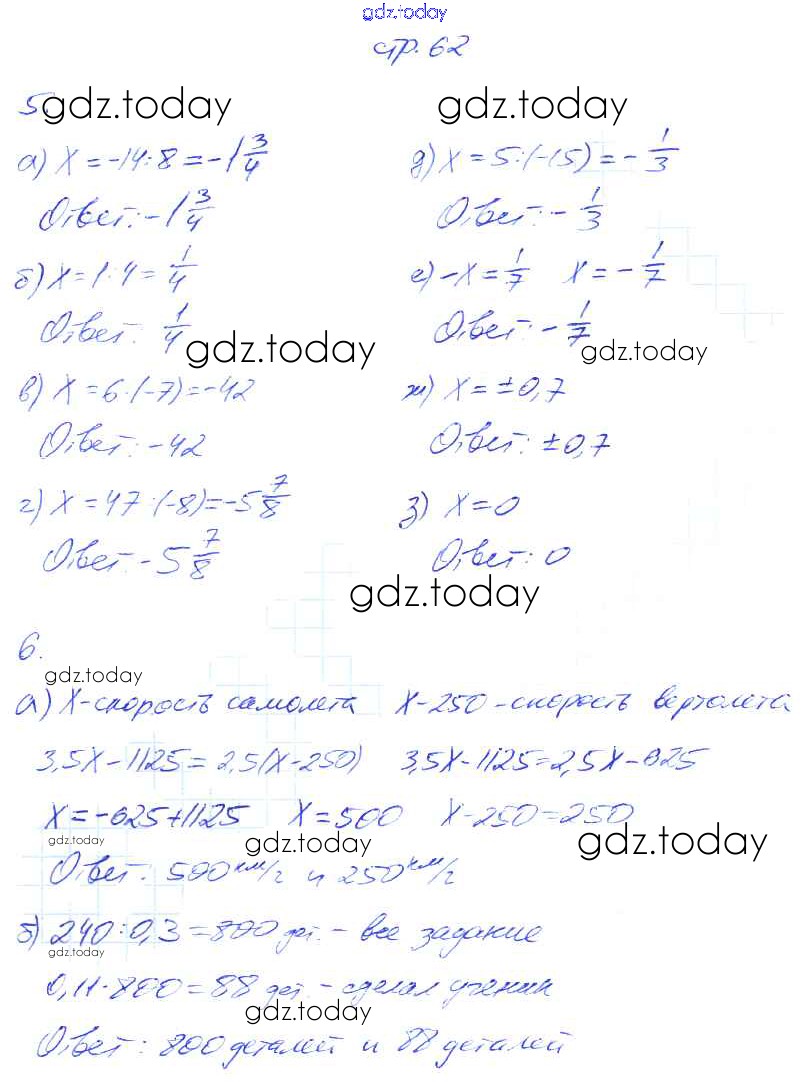 gdz.today
стр. 62
5.
gdz.today gdz.today
а) X = -14 : 8 = -1 3/4
Ответ: -1 3/4
б) X = 1 : 4 = 1/4
Ответ: 1/4
gdz.today
в) X = 6 · (-7) = -42
Ответ: -42
г) X = 47 : (-8) = -5 7/8
Ответ: -5 7/8
д) X = 5 : (-15) = -1/3
Ответ: -1/3
е) -X = 1/7 X = -1/7
Ответ: -1/7
gdz.today
ж) X = ±0,7
Ответ: ±0,7
з) X = 0
Ответ: 0
gdz.today
6.
gdz.today
а) X - скорость самолета X - 250 - скорость вертолета
3,5X - 1125 = 2,5(X - 250) 3,5X - 1125 = 2,5X - 625
X = -625 + 1125 X = 500 X - 250 = 250
gdz.today gdz.today gdz.today
Ответ: 500 км/г и 250 км/г
б) 240 : 0,3 = 800 дет. - все задание
gdz.today
0,11 · 800 = 88 дет. - сделал ученик
gdz.today
Ответ: 800 деталей и 88 деталей